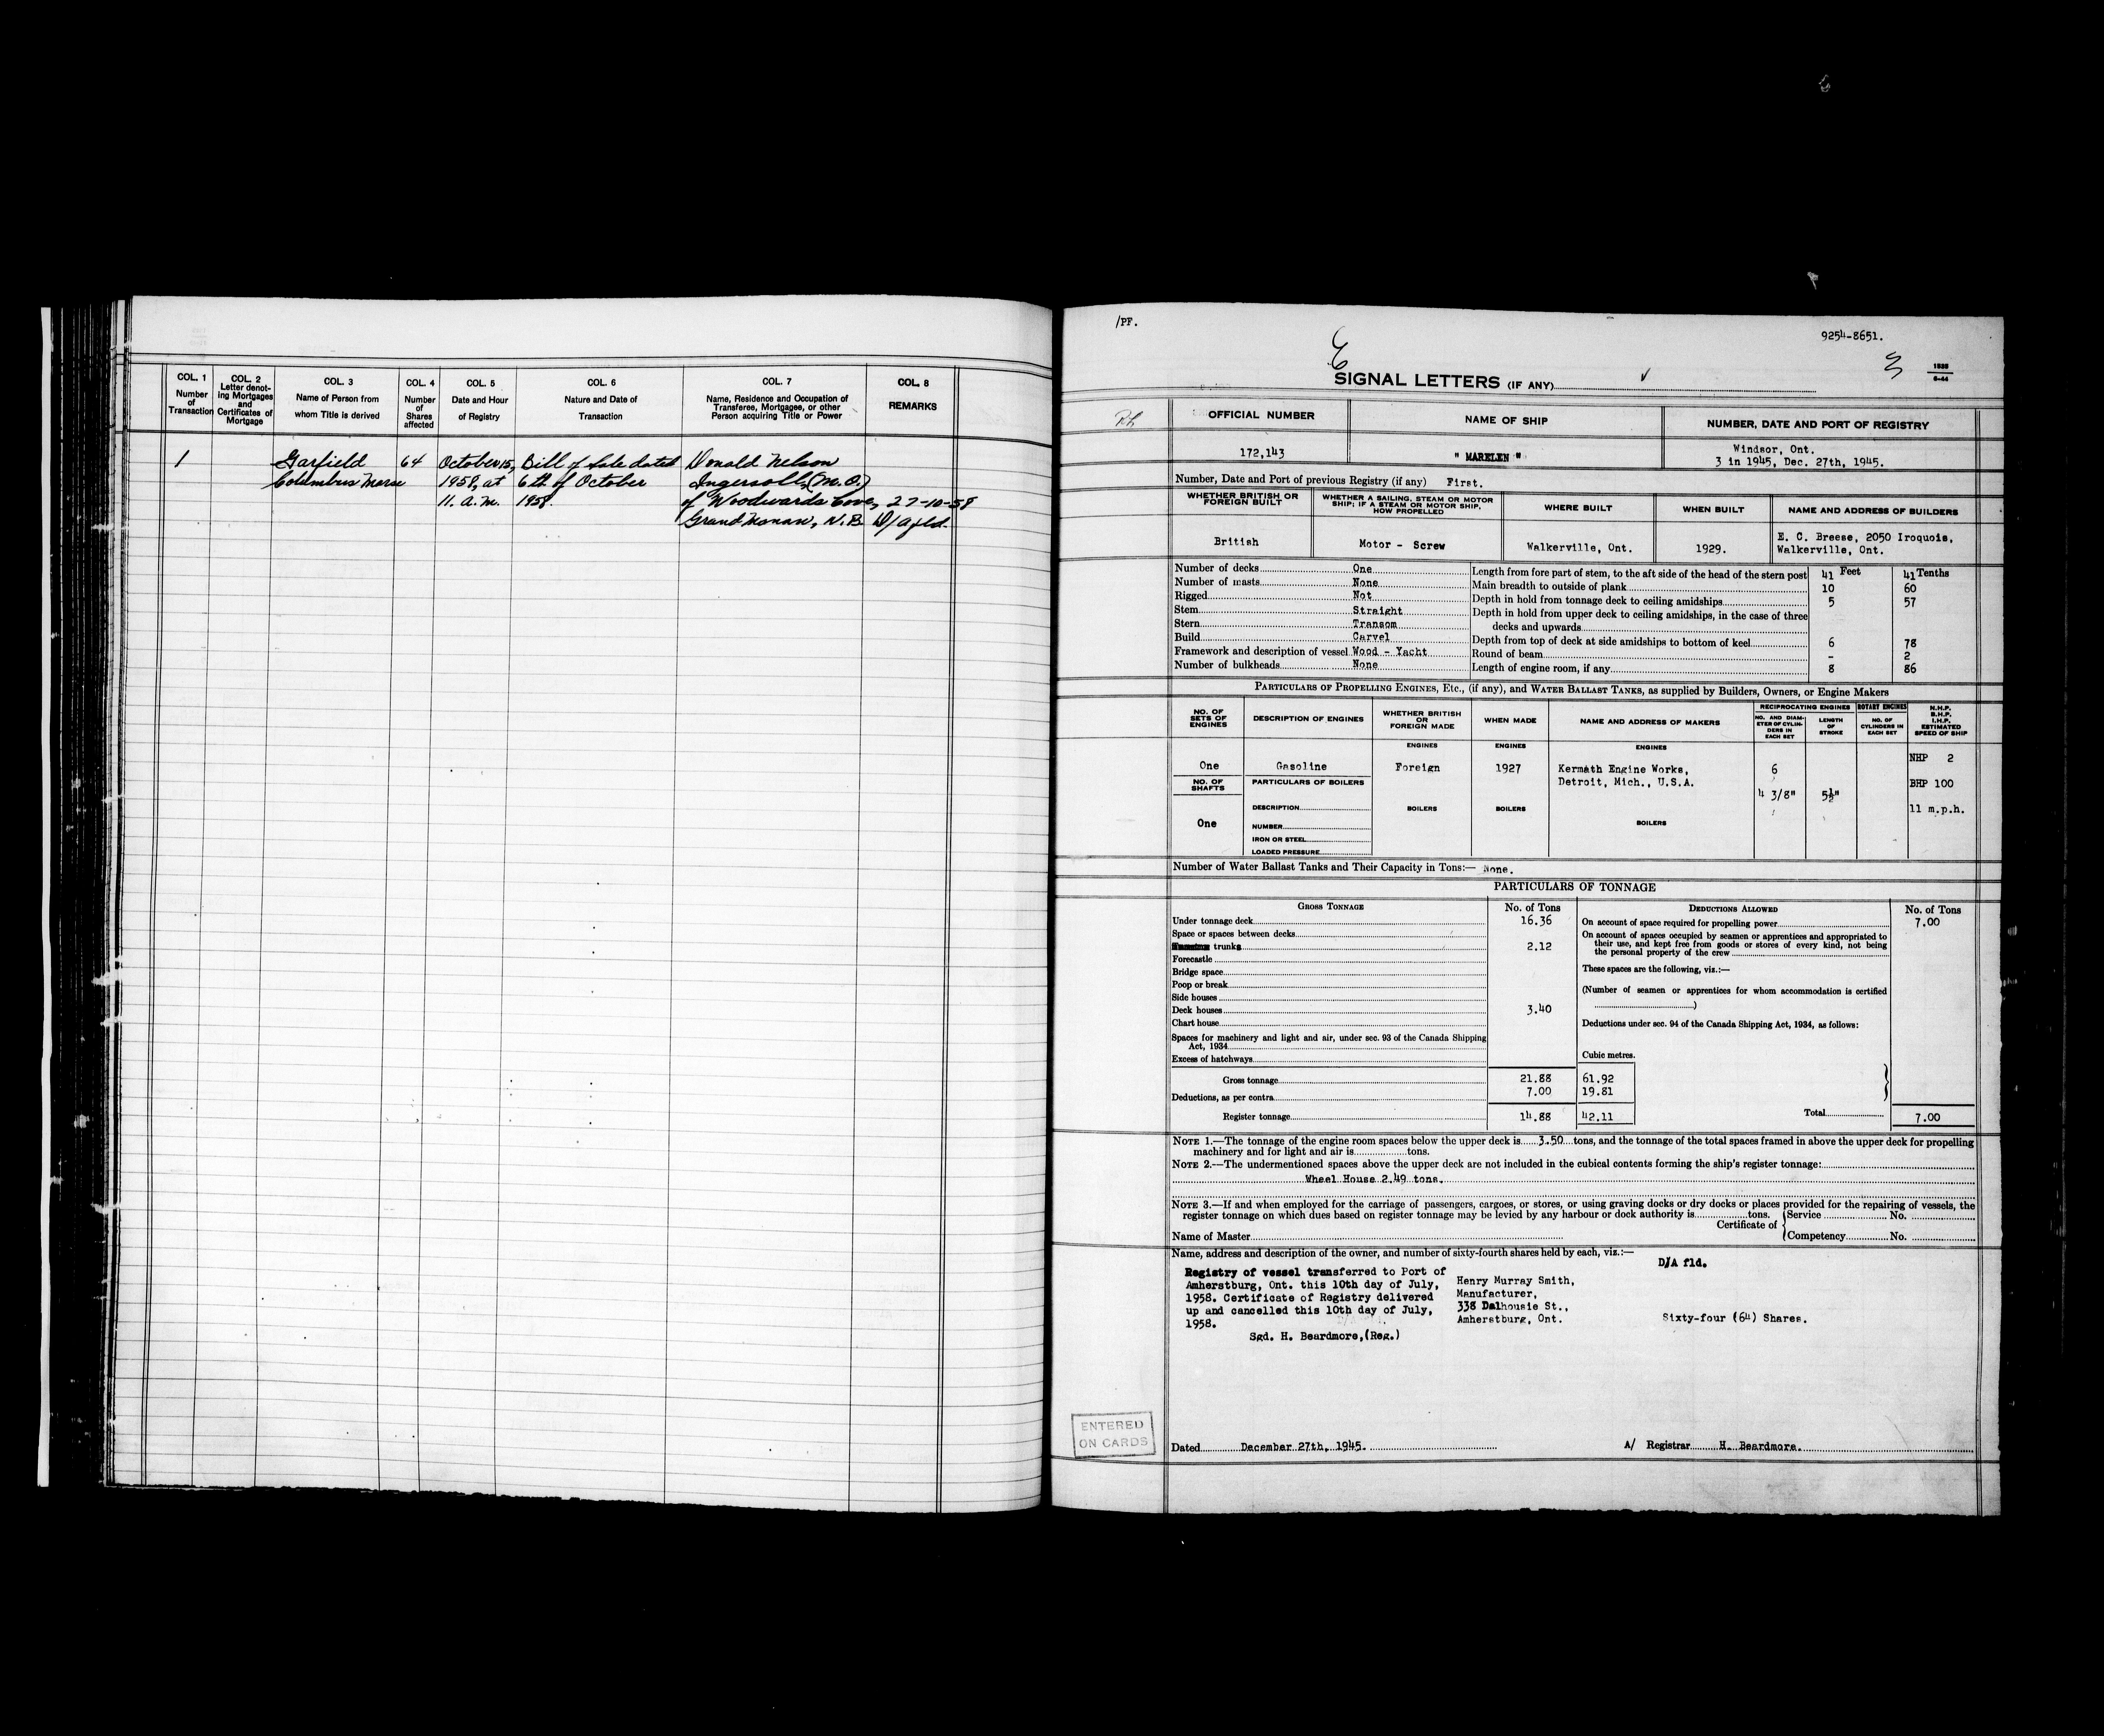 COL. 1
Number
of
Transaction
COL. 2
Letter denot-
ing Mortgages
and
Certificates of
Mortgage
COL. 3
Name of Person from
whom Title is derived
COL. 4
Number
of
Shares
affected
COL. 5
Date and Hour
of Registry
COL. 6
Nature and Date of
Transaction
COL. 7
Name, Residence and Occupation of
Transferee, Mortgagee, or other
Person acquiring Title or Power
COL. 8
REMARKS
1 Garfield 64 October 15, Bill of Sale dated Donald Nelson
Columbus Morse 1958, at 6th of October Ingersoll, (M.O.)
11. A.M. 1958. of Woodwards Cove, 27-10-58
Grand Manan, N.B. D/A fld.
/PF.
9254-8651.
E
SIGNAL LETTERS (IF ANY)
OFFICIAL NUMBER NAME OF SHIP NUMBER, DATE AND PORT OF REGISTRY
172,143 " MARELEN " Windsor, Ont.
3 in 1945, Dec. 27th, 1945.
Number, Date and Port of previous Registry (if any) First.
WHETHER BRITISH OR
FOREIGN BUILT
WHETHER A SAILING, STEAM OR MOTOR
SHIP; IF A STEAM OR MOTOR SHIP,
HOW PROPELLED
WHERE BUILT
WHEN BUILT
NAME AND ADDRESS OF BUILDERS
British Motor - Screw Walkerville, Ont. 1929. E. C. Breese, 2050 Iroquois,
Walkerville, Ont.
Number of decks One
Number of masts None
Rigged Not
Stem Straight
Stern Transom
Build Carvel
Framework and description of vessel Wood - Yacht
Number of bulkheads None
Feet Tenths
Length from fore part of stem, to the aft side of the head of the stern post 41 41
Main breadth to outside of plank 10 60
Depth in hold from tonnage deck to ceiling amidships 5 57
Depth in hold from upper deck to ceiling amidships, in the case of three
decks and upwards
Depth from top of deck at side amidships to bottom of keel 6 78
Round of beam - 2
Length of engine room, if any 8 86
PARTICULARS OF PROPELLING ENGINES, ETC., (if any), and WATER BALLAST TANKS, as supplied by Builders, Owners, or Engine Makers
NO. OF
SETS OF
ENGINES
DESCRIPTION OF ENGINES
WHETHER BRITISH
OR
FOREIGN MADE
WHEN MADE
NAME AND ADDRESS OF MAKERS
RECIPROCATING ENGINES
NO. AND DIAM-
ETER OF CYLIN-
DERS IN
EACH SET
LENGTH
OF
STROKE
ROTARY ENGINES
NO. OF
CYLINDERS IN
EACH SET
N.H.P.
B.H.P.
I.H.P.
ESTIMATED
SPEED OF SHIP
ENGINES ENGINES ENGINES
NHP 2
One Gasoline Foreign 1927 Kermath Engine Works, 6
Detroit, Mich., U.S.A.
BHP 100
NO. OF
SHAFTS
PARTICULARS OF BOILERS
4 3/8" 5½"
DESCRIPTION BOILERS BOILERS 11 m.p.h.
One BOILERS
NUMBER
IRON OR STEEL
LOADED PRESSURE
Number of Water Ballast Tanks and Their Capacity in Tons:— None.
PARTICULARS OF TONNAGE
GROSS TONNAGE No. of Tons
Under tonnage deck 16.36
Space or spaces between decks
trunks 2.12
Forecastle
Bridge space
Poop or break
Side houses
Deck houses 3.40
Chart house
Spaces for machinery and light and air, under sec. 93 of the Canada Shipping
Act, 1934
Excess of hatchways
Cubic metres.
Gross tonnage 21.88 61.92
Deductions, as per contra 7.00 19.81
Register tonnage 14.88 42.11
DEDUCTIONS ALLOWED No. of Tons
On account of space required for propelling power 7.00
On account of spaces occupied by seamen or apprentices and appropriated to
their use, and kept free from goods or stores of every kind, not being
the personal property of the crew
These spaces are the following, viz.:—
(Number of seamen or apprentices for whom accommodation is certified
)
Deductions under sec. 94 of the Canada Shipping Act, 1934, as follows:
Total 7.00
NOTE 1.—The tonnage of the engine room spaces below the upper deck is 3.50 tons, and the tonnage of the total spaces framed in above the upper deck for propelling
machinery and for light and air is tons.
NOTE 2.—The undermentioned spaces above the upper deck are not included in the cubical contents forming the ship's register tonnage:
Wheel House 2.49 tons.
NOTE 3.—If and when employed for the carriage of passengers, cargoes, or stores, or using graving docks or dry docks or places provided for the repairing of vessels, the
register tonnage on which dues based on register tonnage may be levied by any harbour or dock authority is tons.
Name of Master
Certificate of
Service No.
Competency No.
Name, address and description of the owner, and number of sixty-fourth shares held by each, viz.:—
D/A fld.
Registry of vessel transferred to Port of
Amherstburg, Ont. this 10th day of July,
1958. Certificate of Registry delivered
up and cancelled this 10th day of July,
1958.
Sgd. H. Beardmore,(Reg.)
Henry Murray Smith,
Manufacturer,
338 Dalhousie St.,
Amherstburg, Ont.
Sixty-four (64) Shares.
ENTERED
ON CARDS
Dated December 27th, 1945.
A/ Registrar H. Beardmore.